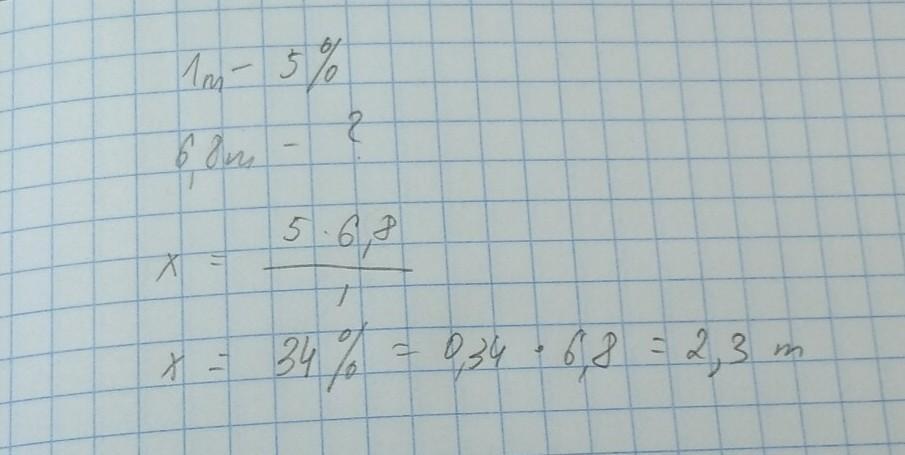 1m - 5%
6,8m - ?
x = 5 · 6,8 / 1
x = 34% = 0,34 · 6,8 = 2,3 m